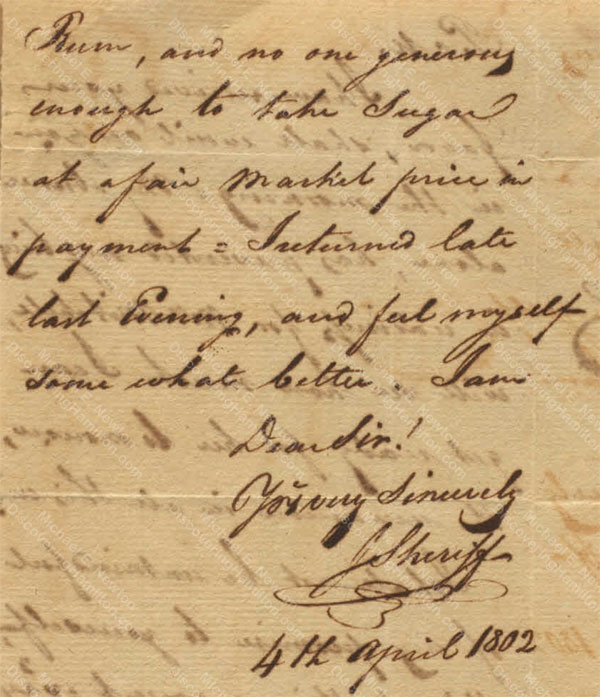 Rum, and no one generous
enough to take Sugar
at a fair market price in
payment = I returned late
last Evening, and feel myself
some what better. I am
Dear Sir!
Yrs very Sincerely
J Sheriff
4th April 1802